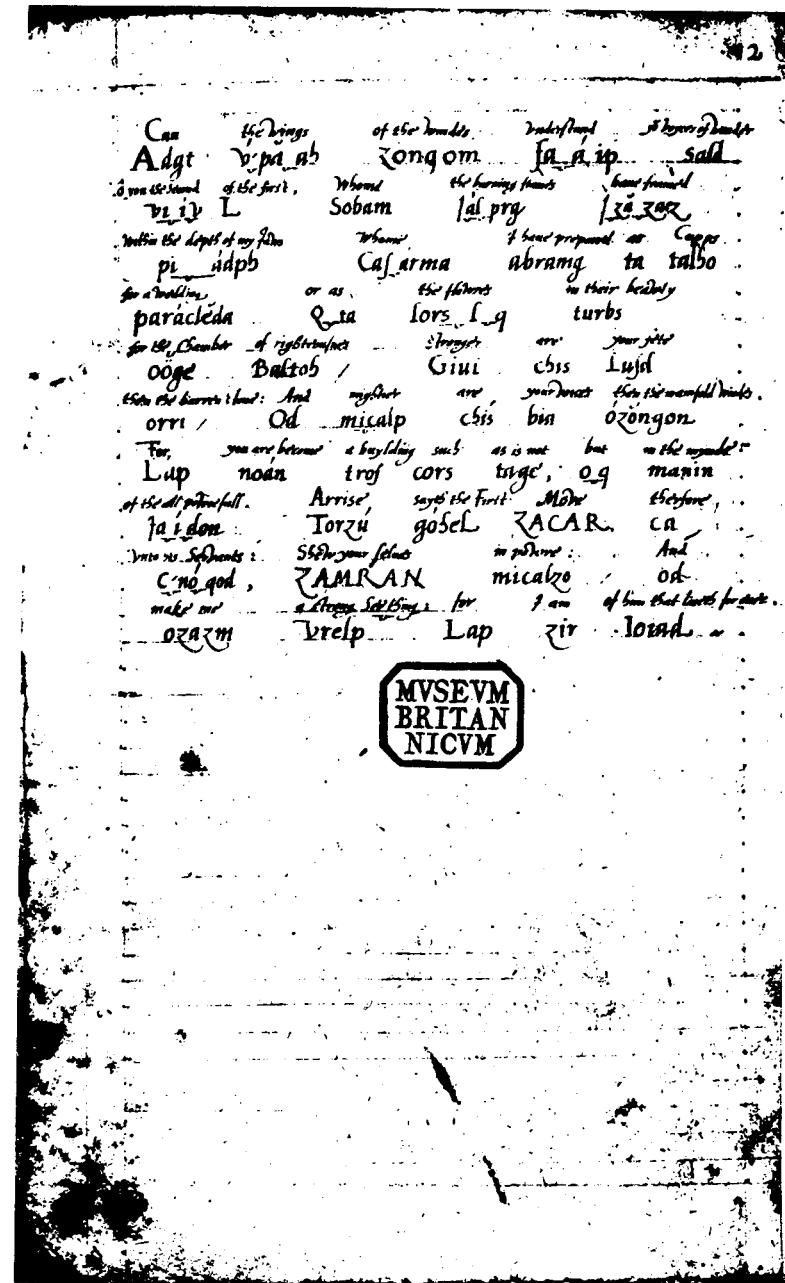 2
Can the wings of the windes understand yor voyces of wunder
Adgt v́paah zongom faáip sald
ô you the second of the first, Whome the burning flames have framed
viiv L Sobam ial prg izazaz
within the depth of my Jaws Whome I have prepared as Cupps
pi ádph Casarma abramg ta talho
for a wedding or as the flowres in their beawty
parácleda Q ta lors l q turbs
for the Chamber of righteousnes Stronger are your fete
ooge Baltoh / Giui chis Lusd
then the barren stone: And mightier are your voices then the manifold windes.
orri / Od micalp chis bia ózongon
For, you are become a buylding such as is not but in the mynde
Lap noán trof cors tage, o q manin
of the all powrefull. Arrise sayth the First Move therfore
Ia i don Torzú góhel ZACAR ca
Unto his Servants: Shew your selues in powre: And
C no qod, ZAMRAN micalzo / od
make me a strong Seething: for I am of him that liveth for ever.
ozazm Vrelp Lap zir Ioiad
MVSEVM
BRITAN
NICVM